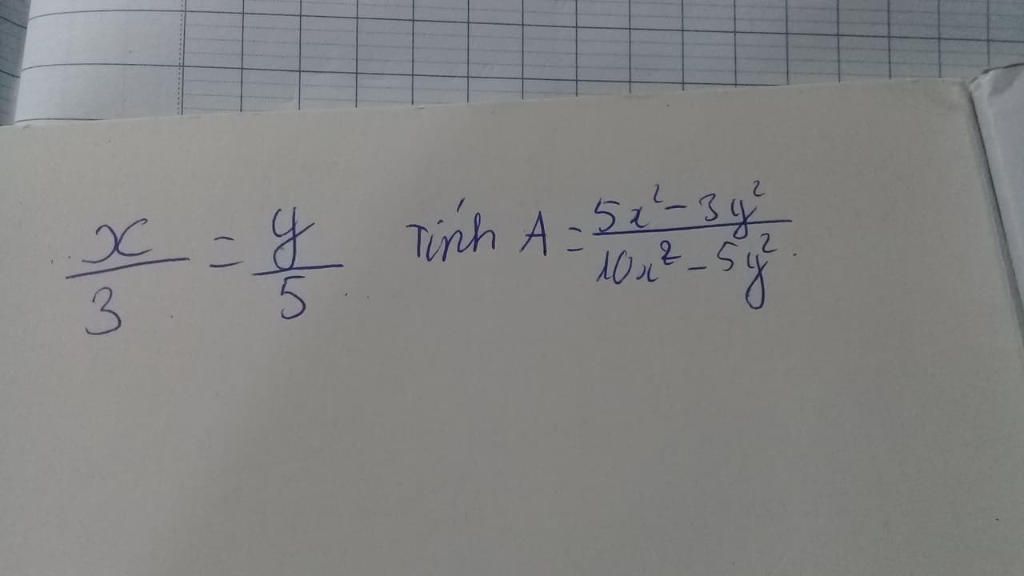 x/3 = y/5 Tính A = 5x² - 3y² / 10x² - 5y²